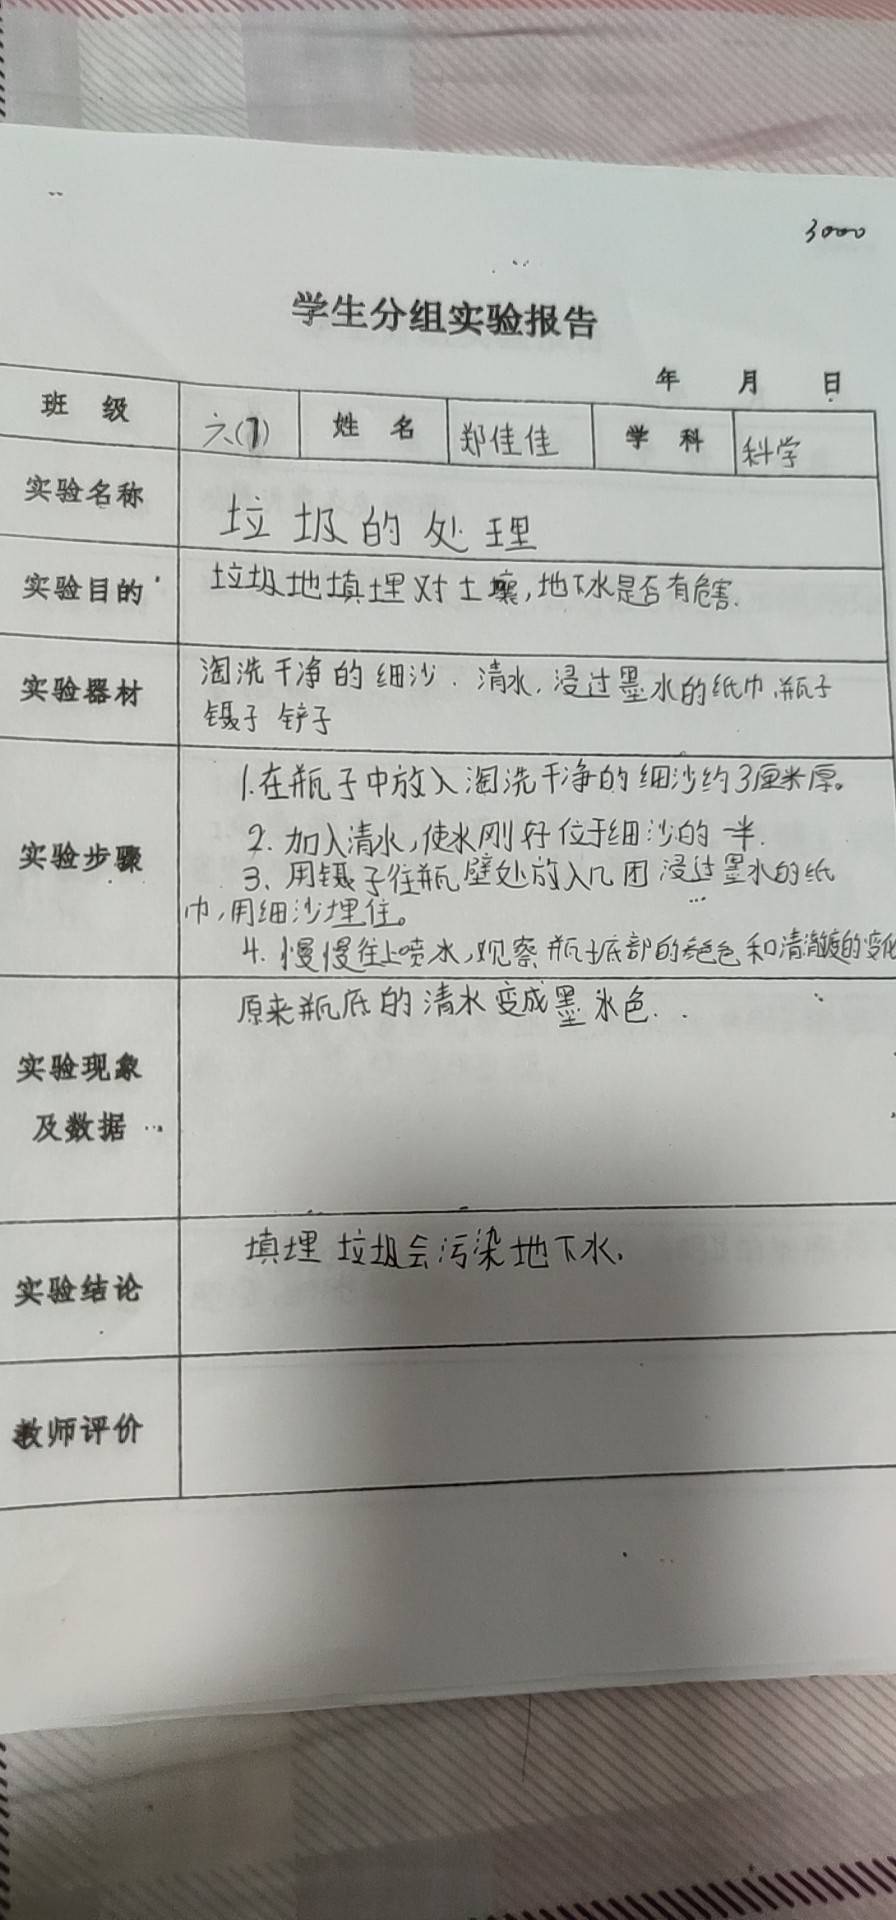 3000
学生分组实验报告
年 月 日
班 级 六(1) 姓 名 郑佳佳 学 科 科学
实验名称 垃圾的处理
实验目的 垃圾地填埋对土壤,地下水是否有危害.
实验器材 淘洗干净的细沙.清水,浸过墨水的纸巾.瓶子
镊子 铲子
实验步骤
1.在瓶子中放入淘洗干净的细沙约3厘米厚。
2.加入清水,使水刚好位于细沙的一半.
3、用镊子往瓶壁处放入几团浸过墨水的纸
巾,用细沙埋住。
4.慢慢往上喷水,观察瓶子底部的颜色和清澈度的变化
实验现象
及数据
原来瓶底的清水变成墨水色.
实验结论 填埋垃圾会污染地下水.
教师评价